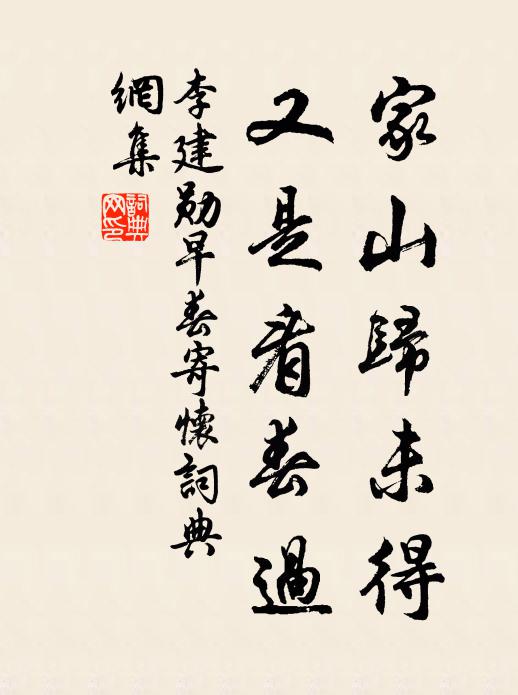 家山歸未得
又是看春過
李建勋早春寄懷詞典
網集
詞典
网印